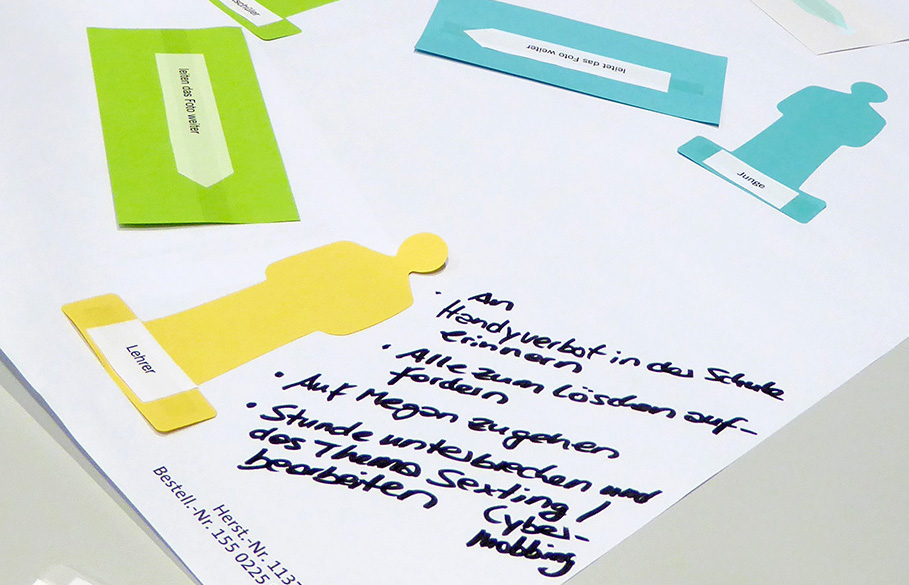 schüler
leiten das Foto weiter
leitet das Foto weiter
Junge
Lehrer
· An
Handyverbot in der Schule
erinnern
· Alle zum Löschen auf-
fordern
· Auf Megan zugehen
· Stunde unterbrechen und
das Thema Sexting /
Cyber-
mobbing
bearbeiten
Herst.-Nr. 113
Bestell.-Nr. 155 0225